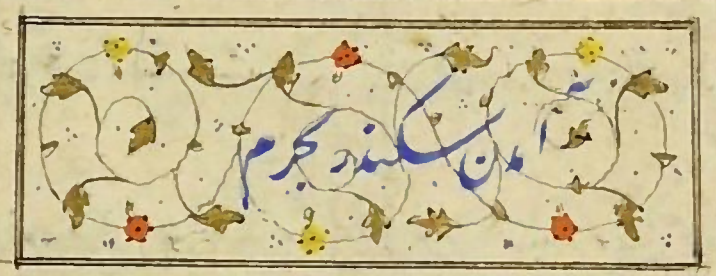 آمدن سکندر بحرم